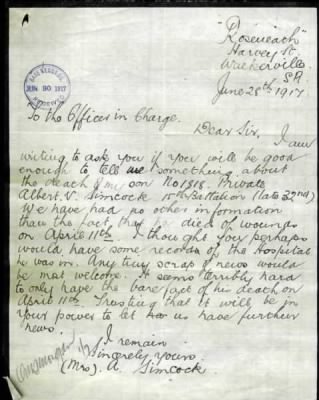 "Roseneath"
Harvey St.
Walkerville.
S.A
June 28th 1917
JUN 30 1917
To the Officer in Charge.
Dear Sir,
I am
writing to ask you if you will be good
enough to tell me something about
the death of my son No 1818. Private
Albert V. Simcock 15th Battalion (late 32nd)
We have had no other information
than the fact that he died of wounds
on April 11th. I thought you perhaps
would have some record of the Hospital
he was in. Any tiny scrap of news would
be most welcome. It seems terribly hard
to only have the bare fact of his death on
April 11th. Trusting that it will be in
your power to let ... us have further
news.
I remain
Sincerely yours
(Mrs) A. Simcock.